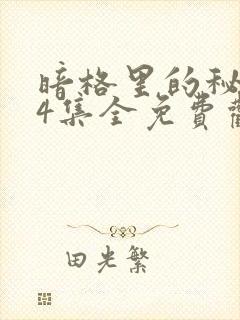 暗格里的秘
4集全免费
田光繁